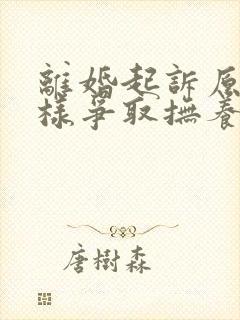 離婚起訴原
樣爭取撫養
唐樹森